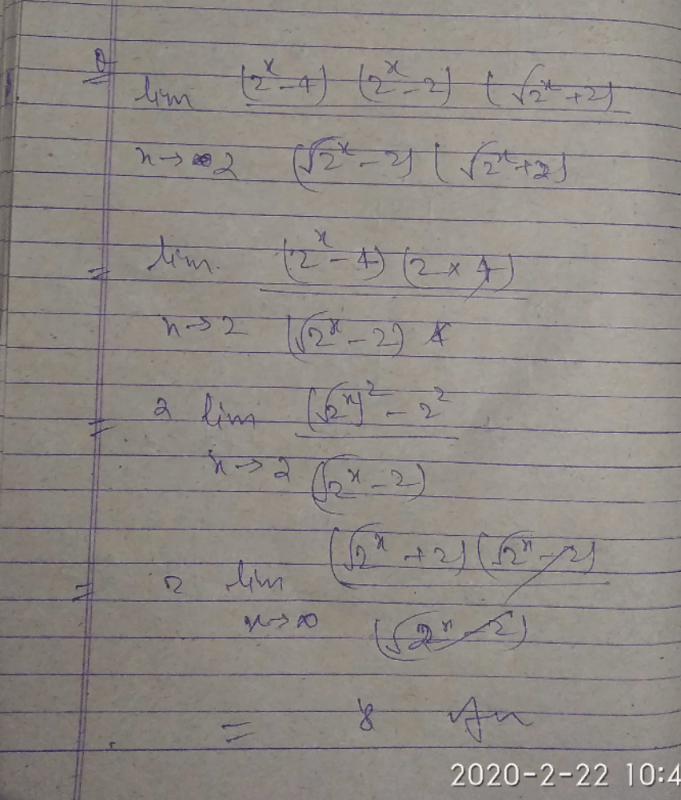 Q
lim (2^x - 4) (2^x - 2) (√2^x + 2)
x→2 (√2^x - 2) (√2^x + 2)
= lim (2^x - 4) (2 × 4)
x→2 (√2^x - 2) 4
= 2 lim (√2^x)^2 - 2^2
x→2 (√2^x - 2)
= 2 lim (√2^x + 2) (√2^x - 2)
x→∞ (√2^x - 2)
= 8 An
2020-2-22 10:4